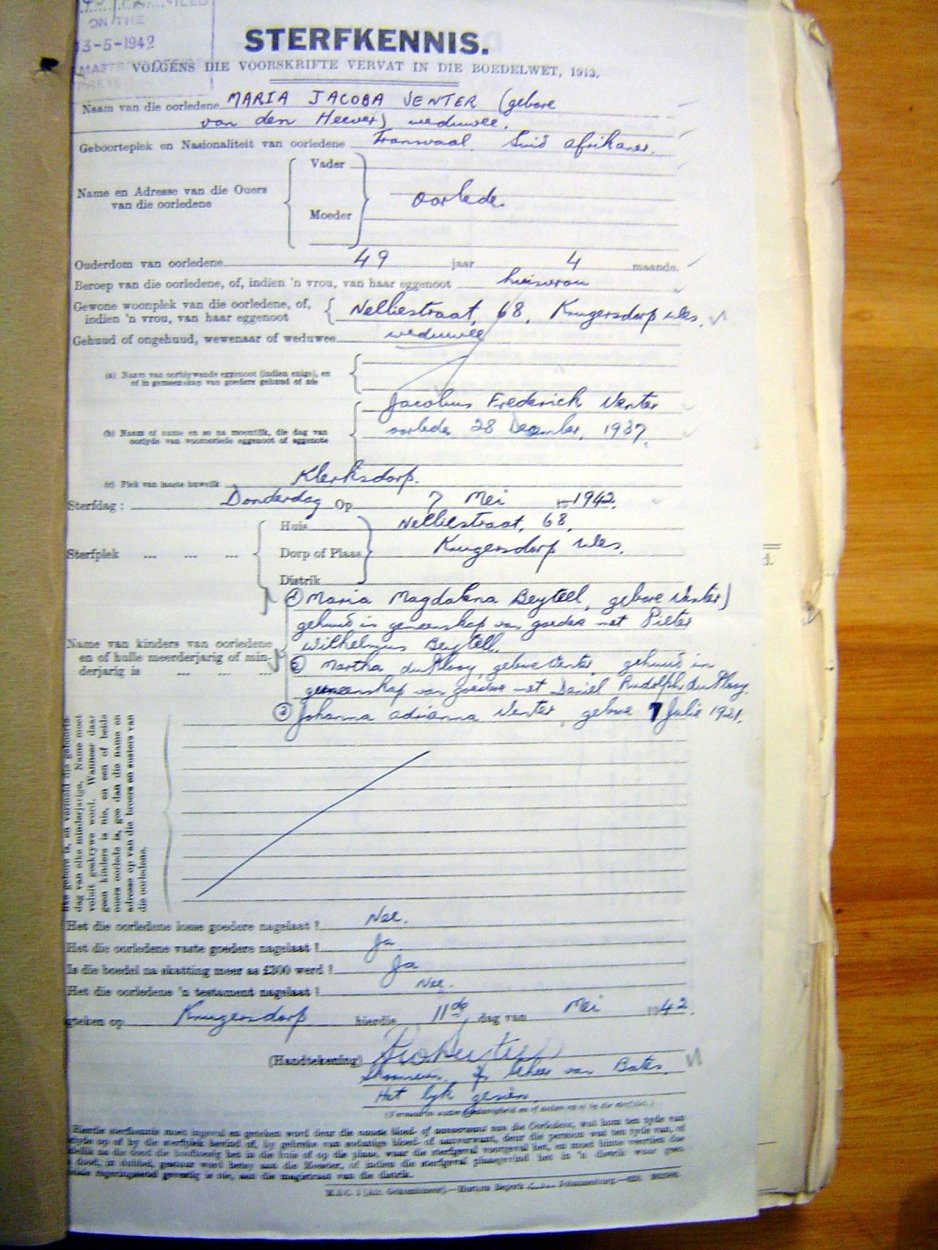 FILED
ON THE
13-5-1942
STERFKENNIS.
VOLGENS DIE VOORSKRIFTE VERVAT IN DIE BOEDELWET, 1913.
Naam van die oorledene MARIA JACOBA VENTER (gebore
van den Heever) weduwee.
Geboorteplek en Nasionaliteit van oorledene Transvaal Suid afrikaner.
Vader
Name en Adresse van die Ouers
van die oorledene
oorlede.
Moeder
Ouderdom van oorledene 49 jaar 4 maande.
Beroep van die oorledene, of, indien 'n vrou, van haar eggenoot huisvrou
Gewone woonplek van die oorledene, of,
indien 'n vrou, van haar eggenoot Nelliestraat, 68, Krugersdorp Wes.
Gehuud of ongehuud, wewenaar of weduwee weduwee
(a) Naam van oorblywende eggenoot (indien enige), en
of in gemeenskap van goedere gehuud of nie
Jacobus Frederick Venter
(b) Naam of name en so na moontlik, die dag van
oorlyde van vooroorlede eggenoot of eggenote
oorlede 28 Desember, 1937.
(c) Plek van laaste huwelik Klerksdorp.
Sterfdag: Donderdag Op 7 Mei 1942.
Huis Nelliestraat, 68,
Sterfplek ... ... ... Dorp of Plaas Krugersdorp Wes.
Distrik
(1) Maria Magdalena Beytell, gebore Venter)
gehuud in gemeenskap van goedere met Pieter
Wilhelmus Beytell.
Name van kinders van oorledene
en of hulle meerderjarig of min-
derjarig is ... ... ...
(2) Martha du Plooy, gebore Venter, gehuud in
gemeenskap van goedere met Daniel Rudolph du Plooy.
(3) Johanna Adrianna Venter, gebore 7 Julie 1921.
dag van elke minderjarige. Name moet
voluit geskrywe word. Wanneer daar
geen kinders is nie, en een of beide
ouers oorlede is, gee dan die name en
adresse op van die broers en susters van
die oorledene.
Het die oorledene losse goedere nagelaat? Nee.
Het die oorledene vaste goedere nagelaat? Ja
Is die boedel na skatting meer as £300 werd? Ja
Het die oorledene 'n testament nagelaat? Nee.
geteken op Krugersdorp hierdie 11de dag van Mei 1942.
(Handtekening)
Skoonseun, in beheer van Boedel.
Het lyk gesien.